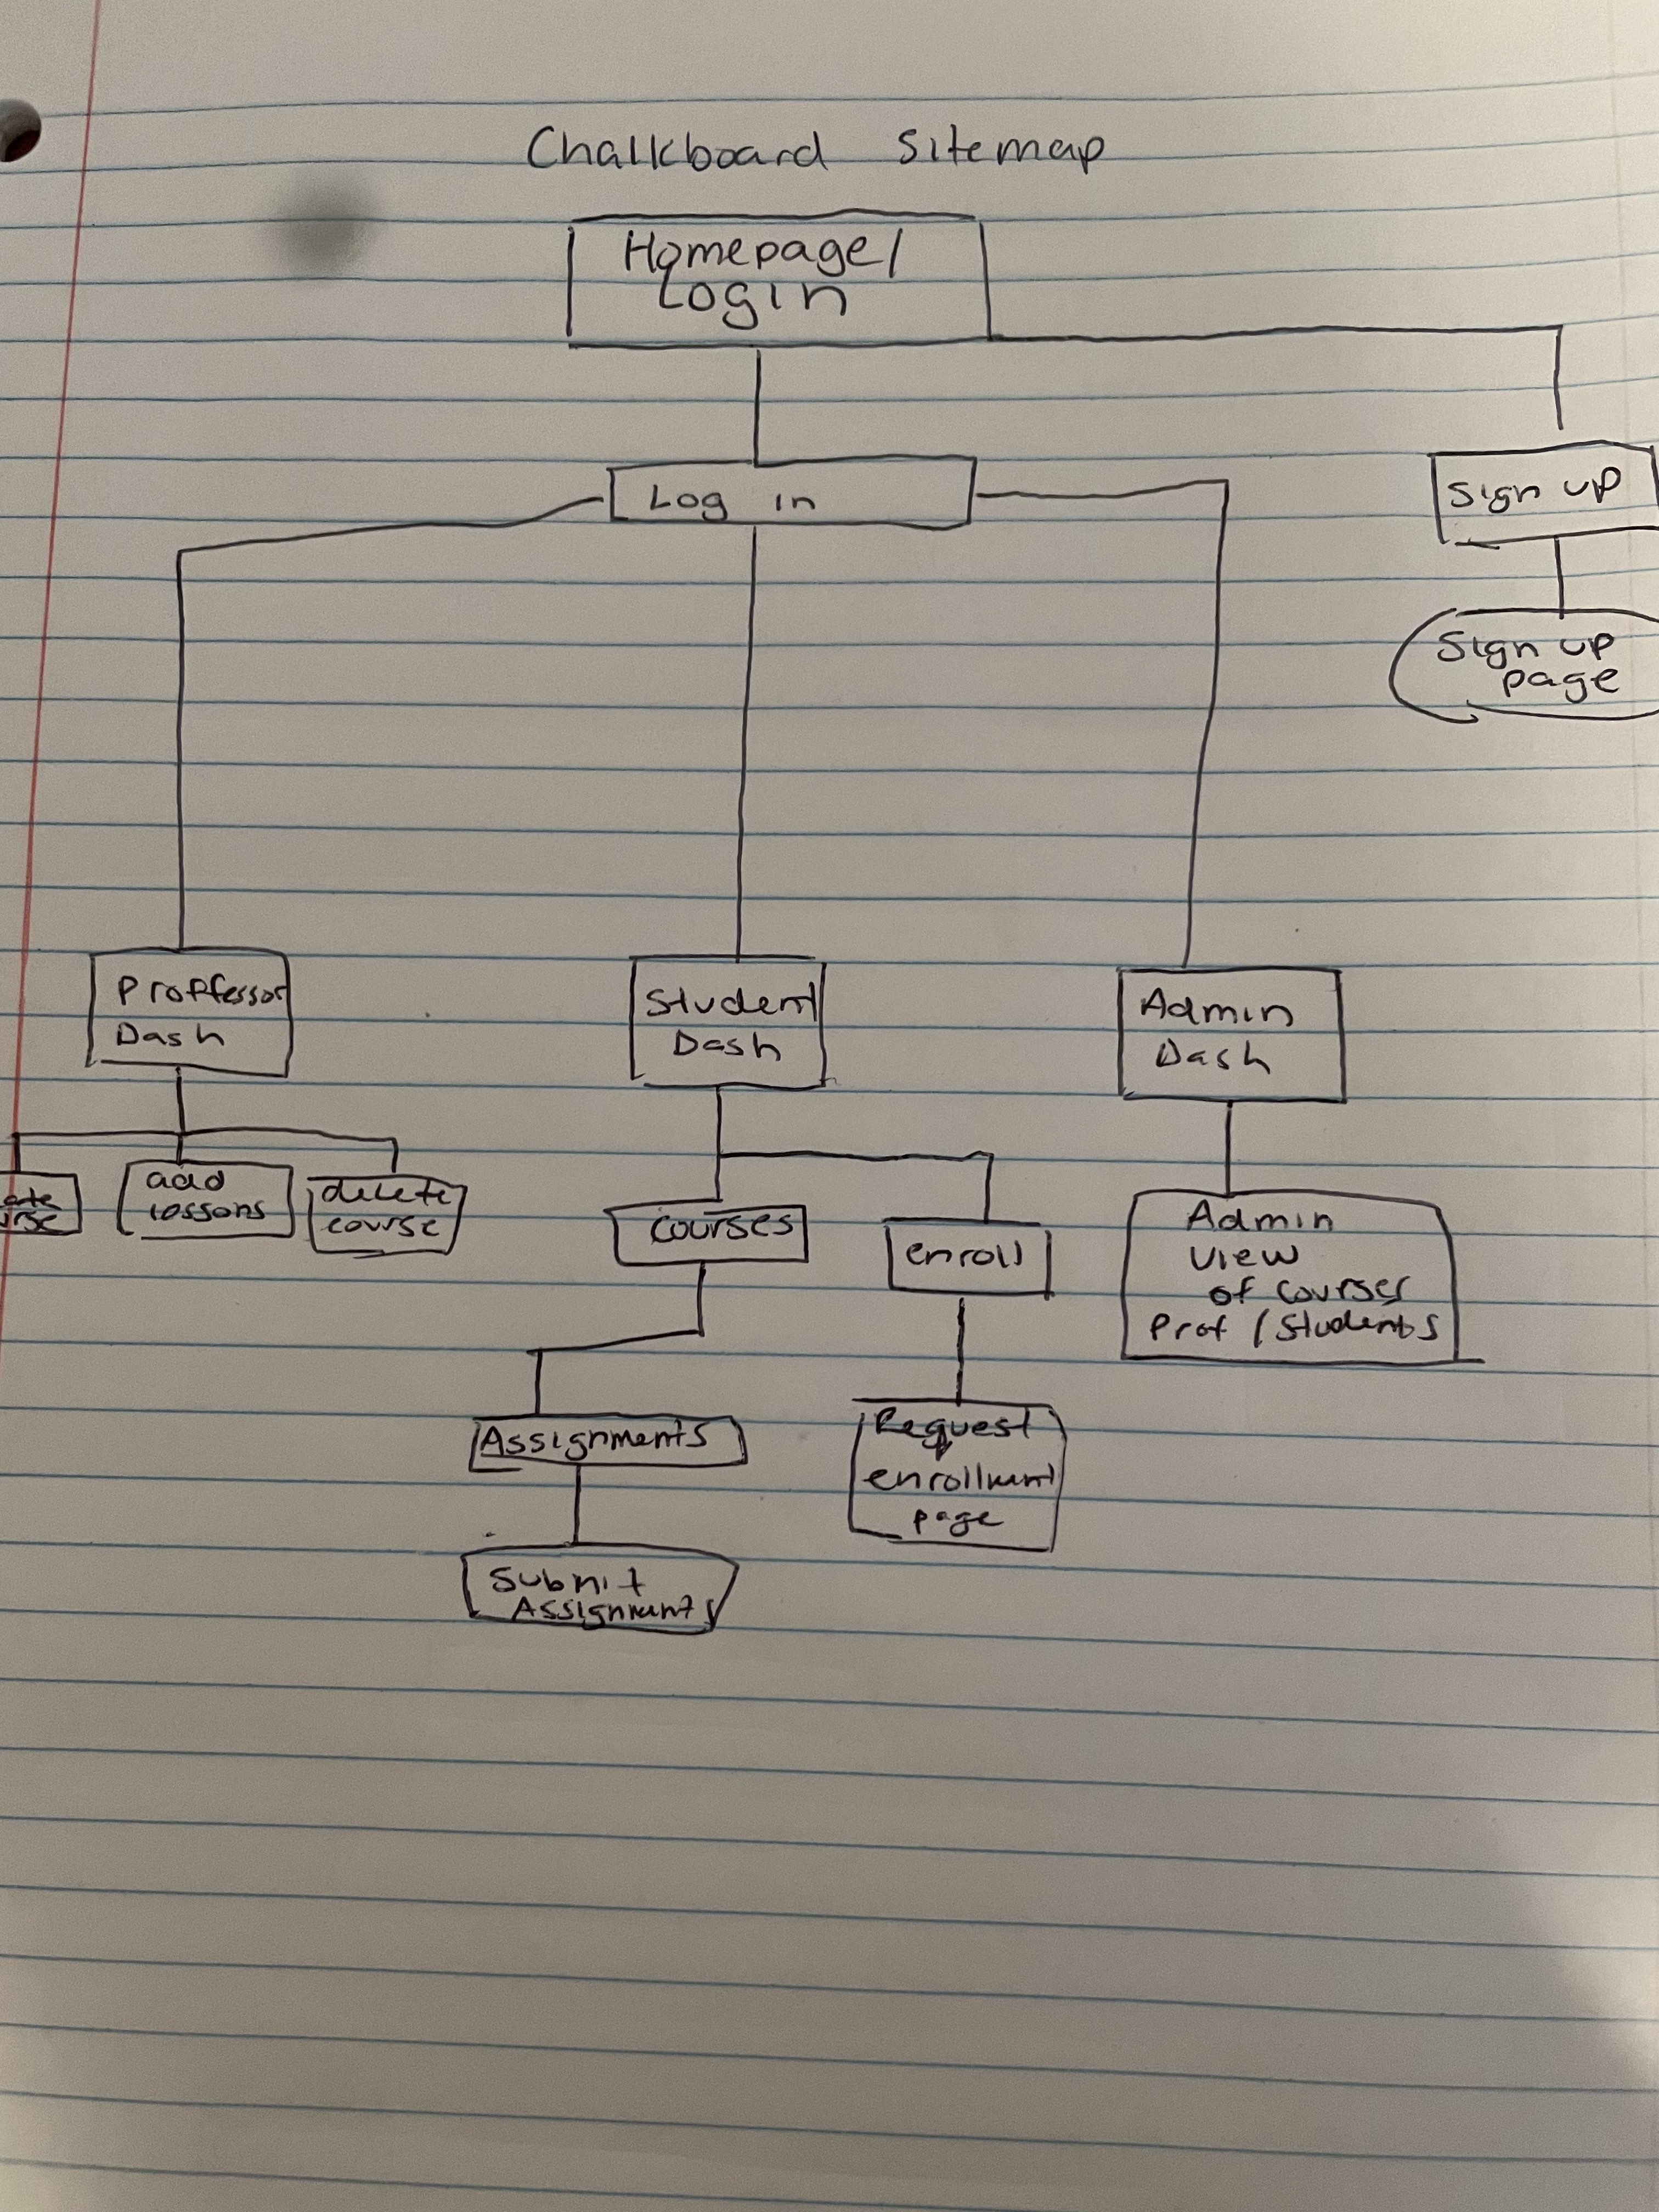 Chalkboard Sitemap
Homepage/
Login
Log in
Sign up
Sign up
page
Proffessor
Dash
Student
Dash
Admin
Dash
add
lessons
delete
course
courses
enroll
Admin
View
of Courses
Prof / Students
Assignments
Request
enrollment
page
Submit
Assignments